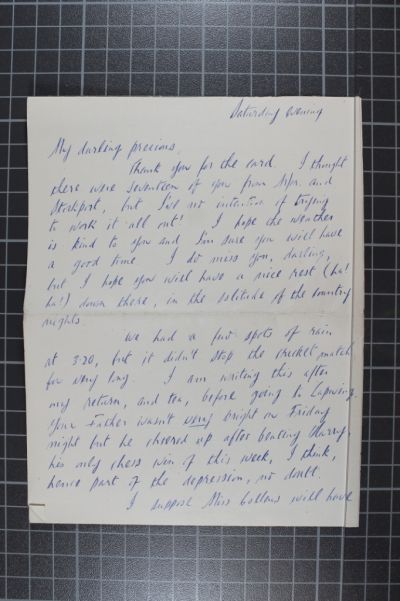 Saturday evening
My darling precious,
Thank you for the card. I thought
there were seventeen of you from Mpr. and
Stockport, but I've no intention of trying
to work it all out! I hope the weather
is kind to you and I'm sure you will have
a good time. I do miss you, darling,
but I hope you will have a nice rest (ha!
ha!) down there, in the solitude of the country
nights.
We had a few spots of rain
at 3.20, but it didn't stop the cricket match
for very long. I am writing this after
my return, and tea, before going to Lapwing.
Your Father wasn't very bright on Friday
night but he cheered up after beating Harry,
his only chess win of this week, I think,
hence part of the depression, no doubt.
I suppose Miss Collens will have